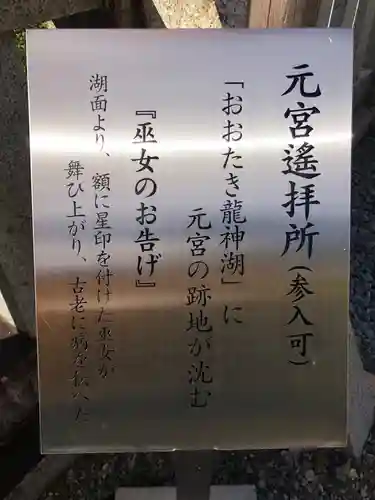 元宮遙拝所(参入可)
「おおたき龍神湖」に
元宮の跡地が沈む
『巫女のお告げ』
湖面より、額に星印を付けた巫女が
舞ひ上がり、古老に病を払へた